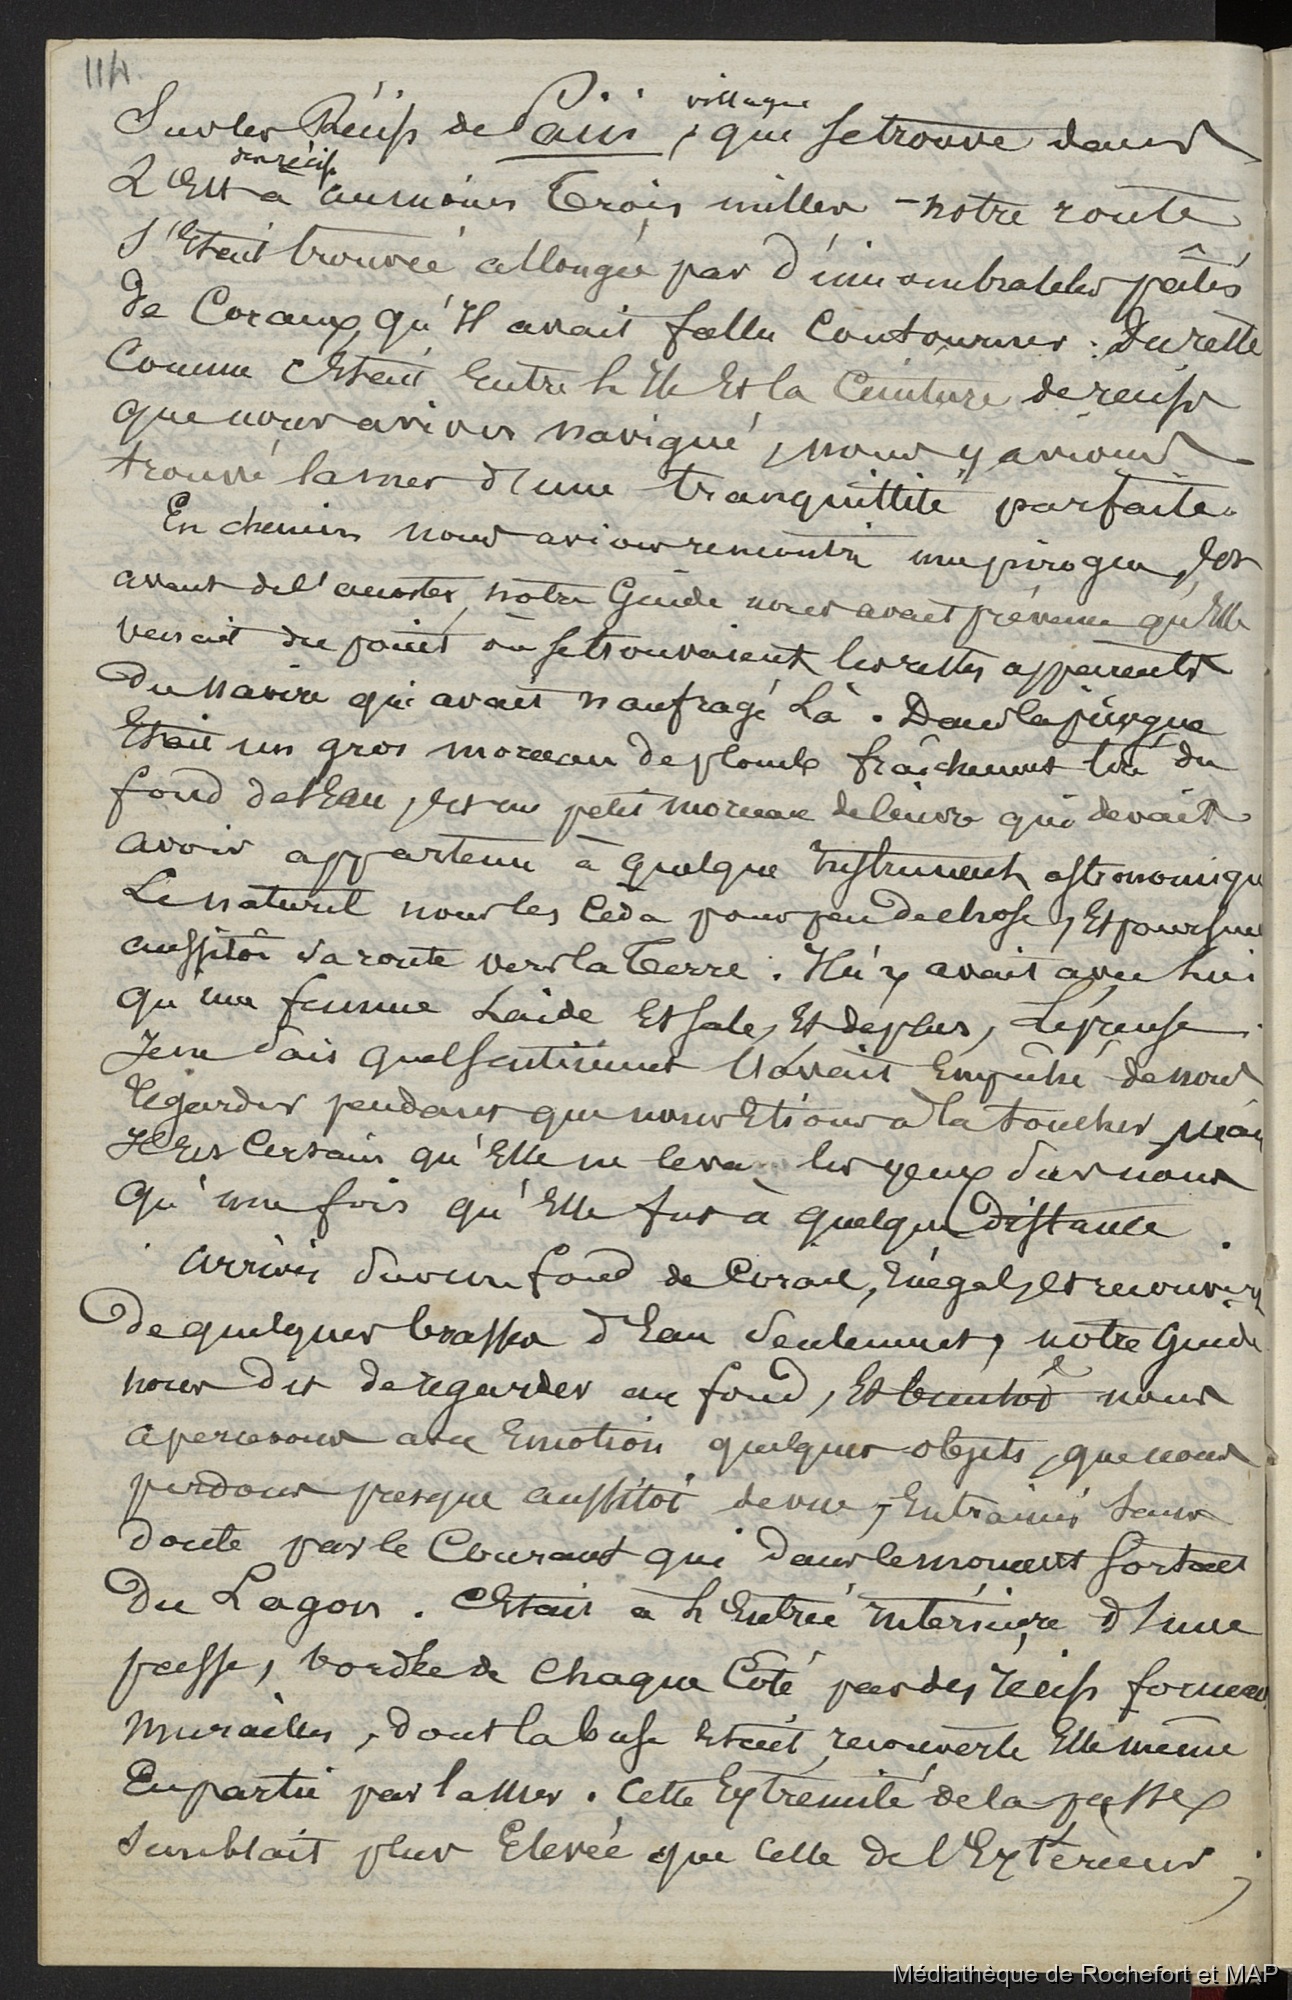 114.
Sur les Récifs de Païu, village qui se trouve dans
L'Est des récifs à au moins Trois milles – notre route
s'Etait trouvée allongée par d'innombrables pâtés
de Coraux, qu'Il avait fallu Contourner. Du reste
Comme c'Etait Entre L'Ile Et la Ceinture de récifs
que nous avions navigué, nous y avions
trouvé la mer d'une tranquillité parfaite.
En chemin nous avions rencontré une pirogue, Et
avant de l'accoster, notre Guide nous avait prévenu qu'Elle
venait du point où se trouvaient les restes apparents
Du Navire qui avait naufragé Là. Dans la pirogue
Etait un gros morceau de plomb fraîchement tiré du
fond de l'Eau, Et un petit morceau de cuivre qui devait
avoir appartenu à quelque Instrument astronomique
Le naturel nous les Céda pour peu de chose, Et poursuivit
aussitôt sa route vers la Terre. Il n'y avait avec lui
qu'une femme Laide Et sale, Et de plus, Lépreuse.
Je ne sais quel sentiment l'avait Empêché de nous
regarder pendant que nous Etions à la toucher, mais
Il Est Certain qu'Elle ne leva les yeux sur nous
qu'une fois qu'Elle fut à quelque distance.
arrivés sur un fond de Corail, Inégal, Et recouvert
De quelques brasses d'Eau seulement, notre Guide
nous dit de regarder au fond, Et bientôt nous
apercevons avec Emotion quelques objets, que nous
perdons presque aussitôt de vue, Entrainés sans
doute par le Courant qui dans le moment sortait
Du Lagon. C'Etait à L'Entrée Intérieure d'une
passe, bordée de chaque Côté par des récifs formant
murailles, dont la base Etait recouverte Elle même
En partie par la Mer. Cette Extrémité de la passe
semblait plus Elevée que Celle de l'Extérieur,
Médiathèque de Rochefort et MAP